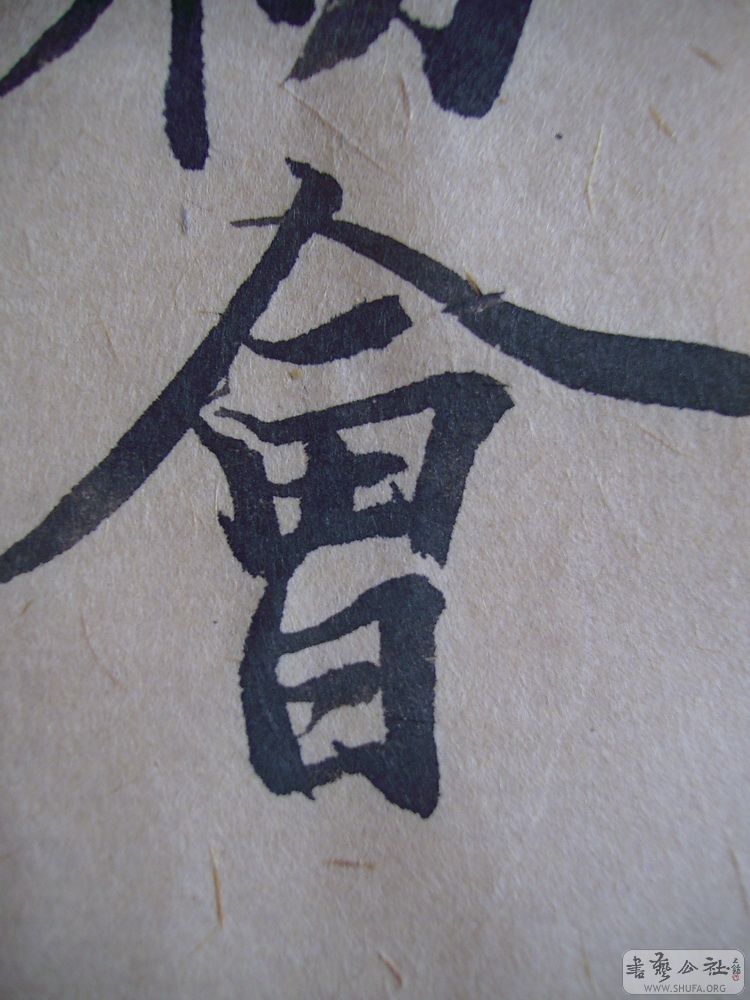 會
書藝公社
WWW.SHUFA.ORG